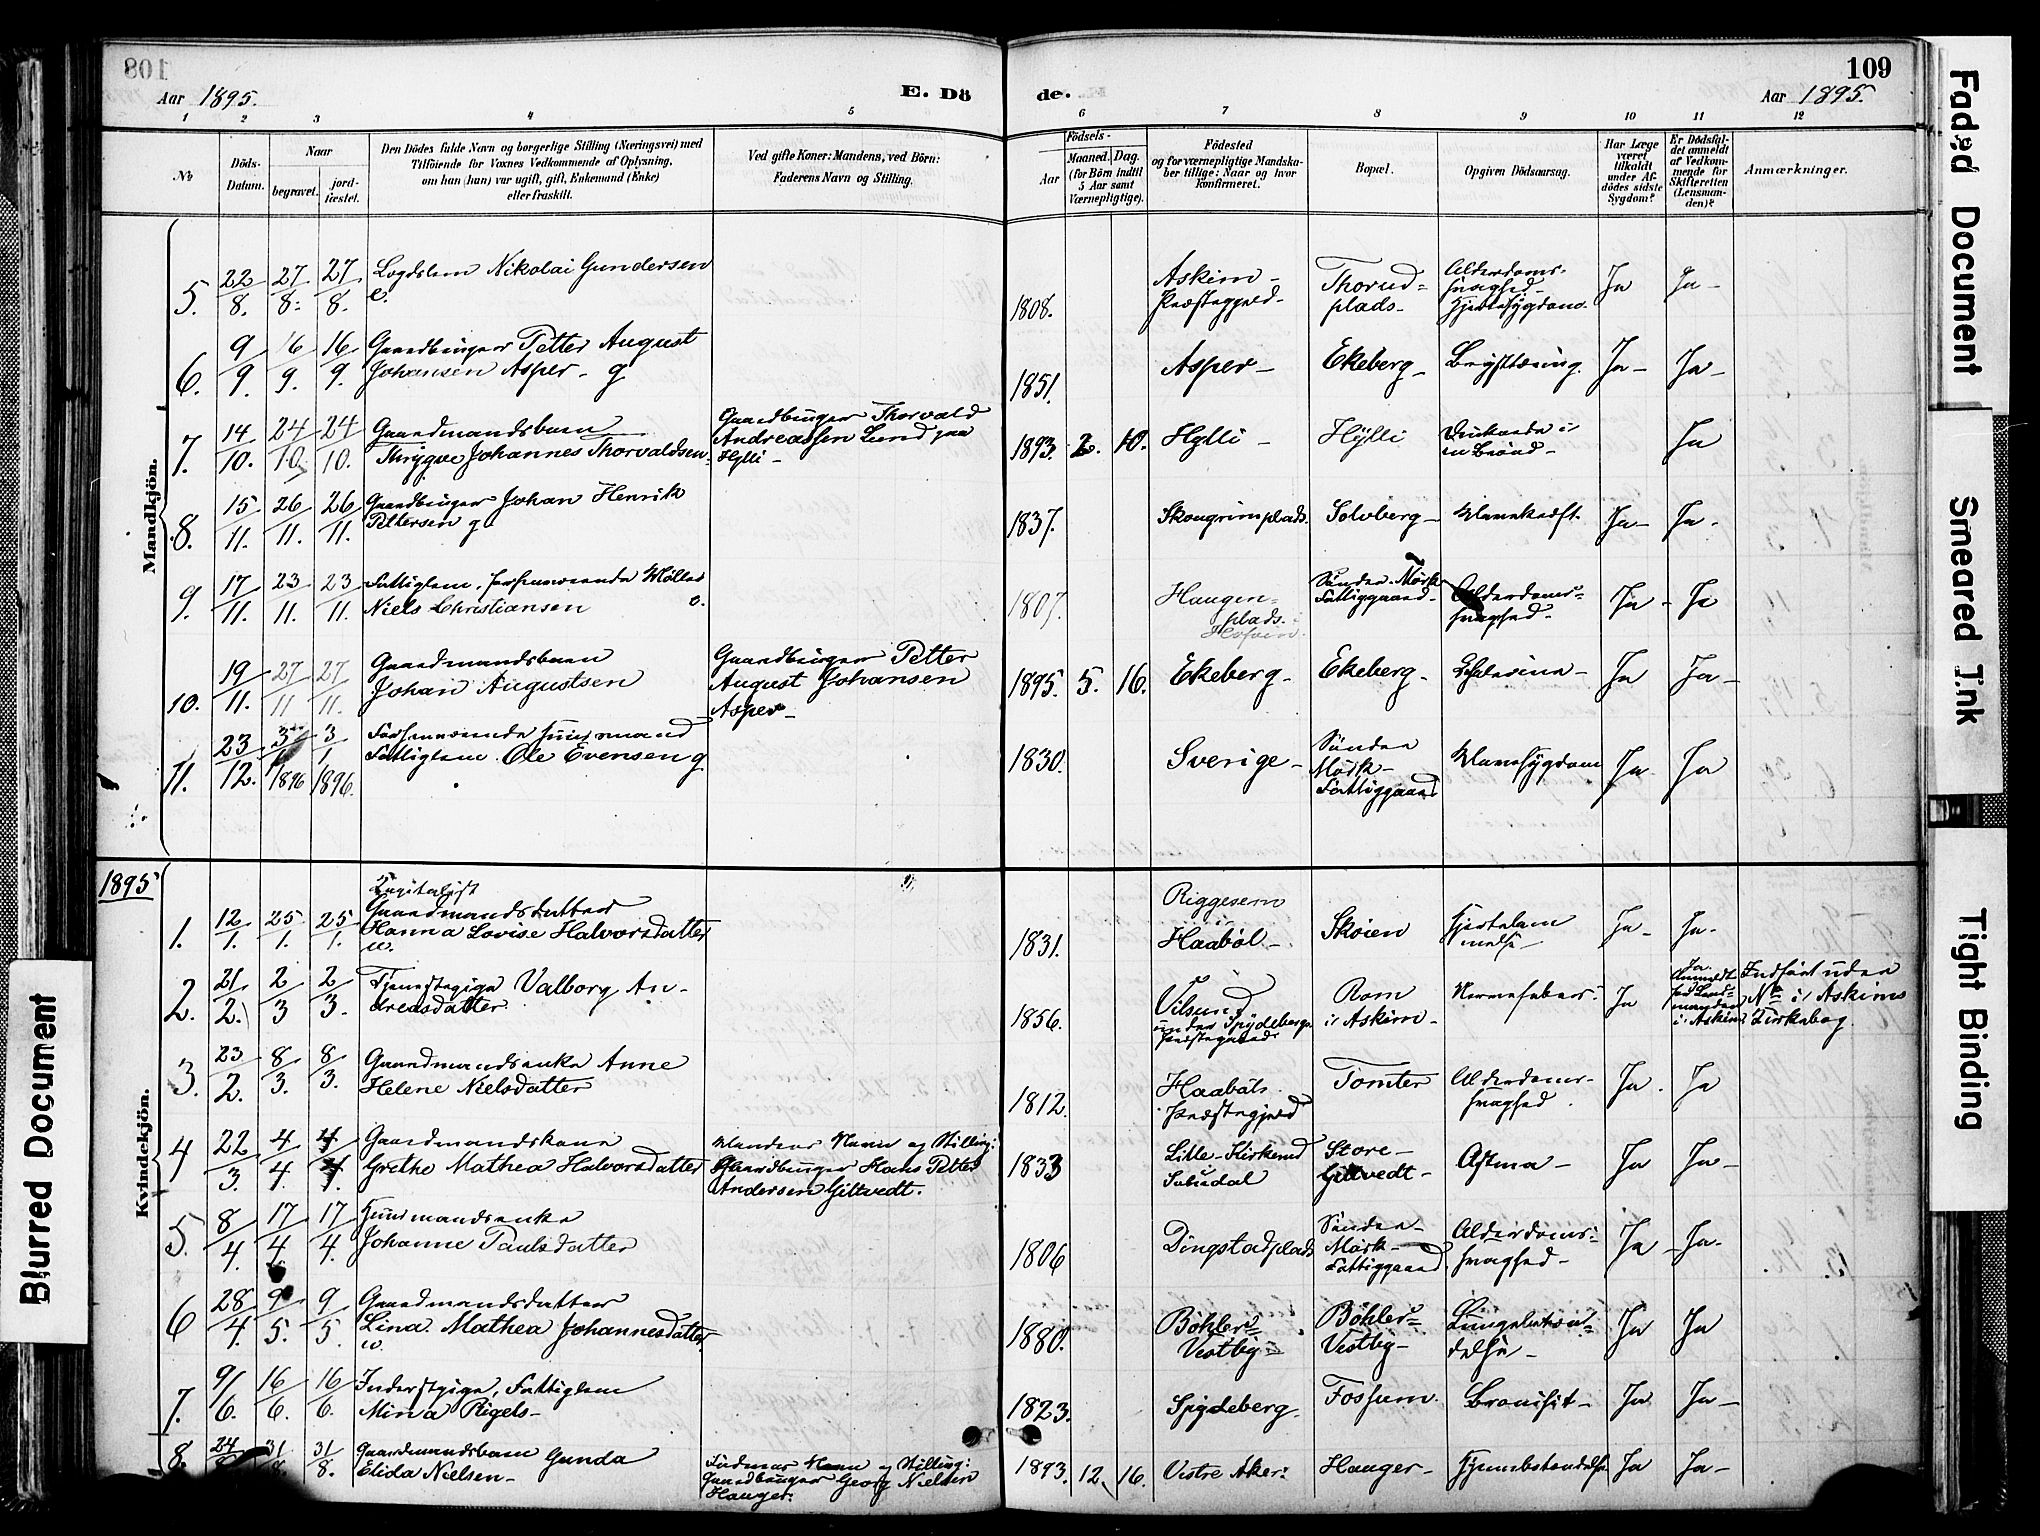 108
109
Aar 1895.
E. Dö
de.
Aar 1895.
1 2 3 4 5 6 7 8 9 10 11 12
No
Döds-Datum.
Naar
begravet.
jord-fæstet.
Den Dödes fulde Navn og borgerlige Stilling (Næringsvei) med
Tilföiende for Voxnes Vedkommende af Oplysning,
om han (hun) var ugift, gift, Enkemand (Enke)
eller fraskilt.
Ved gifte Koner: Mandens, ved Börn:
Faderens Navn og Stilling.
Födsels-
Aar
Maaned. Dag.
(for Börn indtil
5 Aar samt
Værnepligtige).
Födested
og for værnepligtige Mandska-
ber tillige: Naar og hvor
konfirmeret.
Bopæl.
Opgiven Dödsaarsag.
Har Læge
været
tilkaldt
under Af-
dödes sidste
Sygdom?
Er Dödsfal-
det anmeldt
af Vedkom-
mende for
Skifteretten
(Lensman-
den)?
Anmærkninger.
Mandkjön.
5. 22/8. 27/8. 27/8. Logdslem Nikolai Gundersen
e.
1808. Askim-
Præstegjeld- Thorud-
plads- Alderdoms-
svaghed-
Hjertesygdom. Ja Ja-
6. 9/9 16/9. 16/9. Gaardbruger Petter August
Johansen Asper- g
1851. Asper- Ekeberg- Brysttæring. Ja- Ja-
7. 14/10. 24/10 24/10. Gaardmandsbarn
Thrygve Johannes Thorvaldsen-
Gaardbruger Thorvald
Andreassen Lund paa
Hylli-
1893. 2. 10. Hylli- Hylli Druknede i
en Brönd- Ja
8. 15/11. 26/11. 26/11. Gaardbruger Johan Henrik
Pettersen g
1837. Skougrimplads. Solvberg- Mavekræft. Ja- Ja.
9. 17/11. 23/11. 23/11. Fattiglem, forhenværende Möller
Niels Christiansen e.
1807. Haugen-
plads.
Söndre Mörk
Fattiggaard- Alderdoms-
svaghed- Ja- Ja
10. 19/11. 27/11 27/11. Gaardmandsbarn
Johan Augustsen
Gaardbruger Petter
August Johansen
Asper-
1895. 5. 16. Ekeberg- Ekeberg- Ja Ja-
11. 23/12. 3/1 1896 3/1 1896. Forhenværende Huusmand
Fattiglem Ole Evensen g
1830. Sverige- Söndre
Mörk-
Fattiggaard Mavesygdom Ja Ja
1895
Kvindekjön.
1. 12/1. 25/1. 25/1. Logitalist
Gaardmandsdatter
Hanna Lovise Halvorsdatter
u.
1831. Riggesern
i
Haaböl- Skoien Hjertelam
melse- Ja- Ja-
2. 21/2. 2/3 2/3. Tjenestepige Valborg An-
dreasdatter.
1856. Vilsund
under Spydebergs
Præstegaard Rom
i Askim- Nervefeber. Ja Ja
Anmeldt
hos Lends-
manden
i Askim. Indfört uden
No i Askims
Kirkebog.
3. 23/2. 8/3. 8/3. Gaardmandsenke Anne
Helene Nielsdatter
1812. Haaböls
Præstegjeld Tomter Alderdoms-
svaghed. Ja. Ja
4 22/3. 4/4. 4/4. Gaardmandskone
Grethe Mathea Halvorsdatter
Mandens Navn og Stilling:
Gaardbruger Hans Petter
Andersen Giltvedt.
1833 Lille-Kirkerud
Store-
Giltvedt- Astma- Ja Ja-
5. 8/4. 17/4. 17/4. Huusmandsenke
Johanne Paulsdatter
1806 Dingstadplads Söndre-
Mörk-
Fattiggaard. Alderdoms-
svaghed- Ja- Ja-
6 28/4. 9/5. 9/5. Gaardmandsdatter
Lina Mathea Johannesdatter.
u.
1880. Böhler-
Vestby- Böhler-
Vestby- Lungebetæn-
delse- Ja Ja
7. 9/6. 16/6. 16/6. Inderstpige, Fattiglem
Mina Rigels-
1823. Spydeberg. Fossum. Bronsit- Ja Ja-
8. 24 31/8. 31/8. Gaardmandsbarn Gunda
Elida Nielsen-
Faderens Navn og Stilling:
Gaardbruger Georg Nielsen
Hauger.
1893. 12. 16. Vestre Aker: Hauger- Hjernebetændelse Ja Ja-
Faded Document
Smeared Ink
Tight Binding
Blurred Document